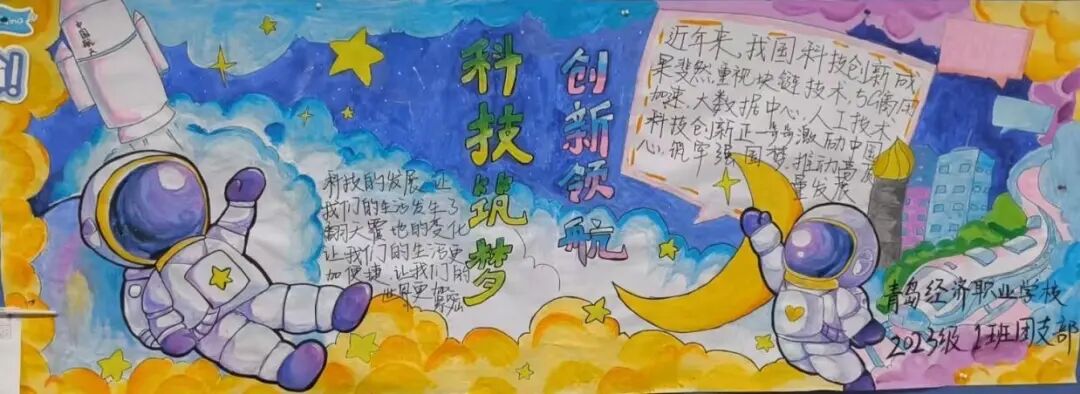 中国航天
科技筑梦
创新领航
科技的发展，让
我们的生活发生了
翻天覆地的变化
让我们的生活更
加便捷，让我们的
世界更加
近年来，我国科技创新成
果斐然重视块链技术，5G商用
加速，大数据中心，人工技术
科技创新正一步步激励中国
心，筑牢强国梦，推动高质
量发展
青岛经济职业学校
2023级1班团支部